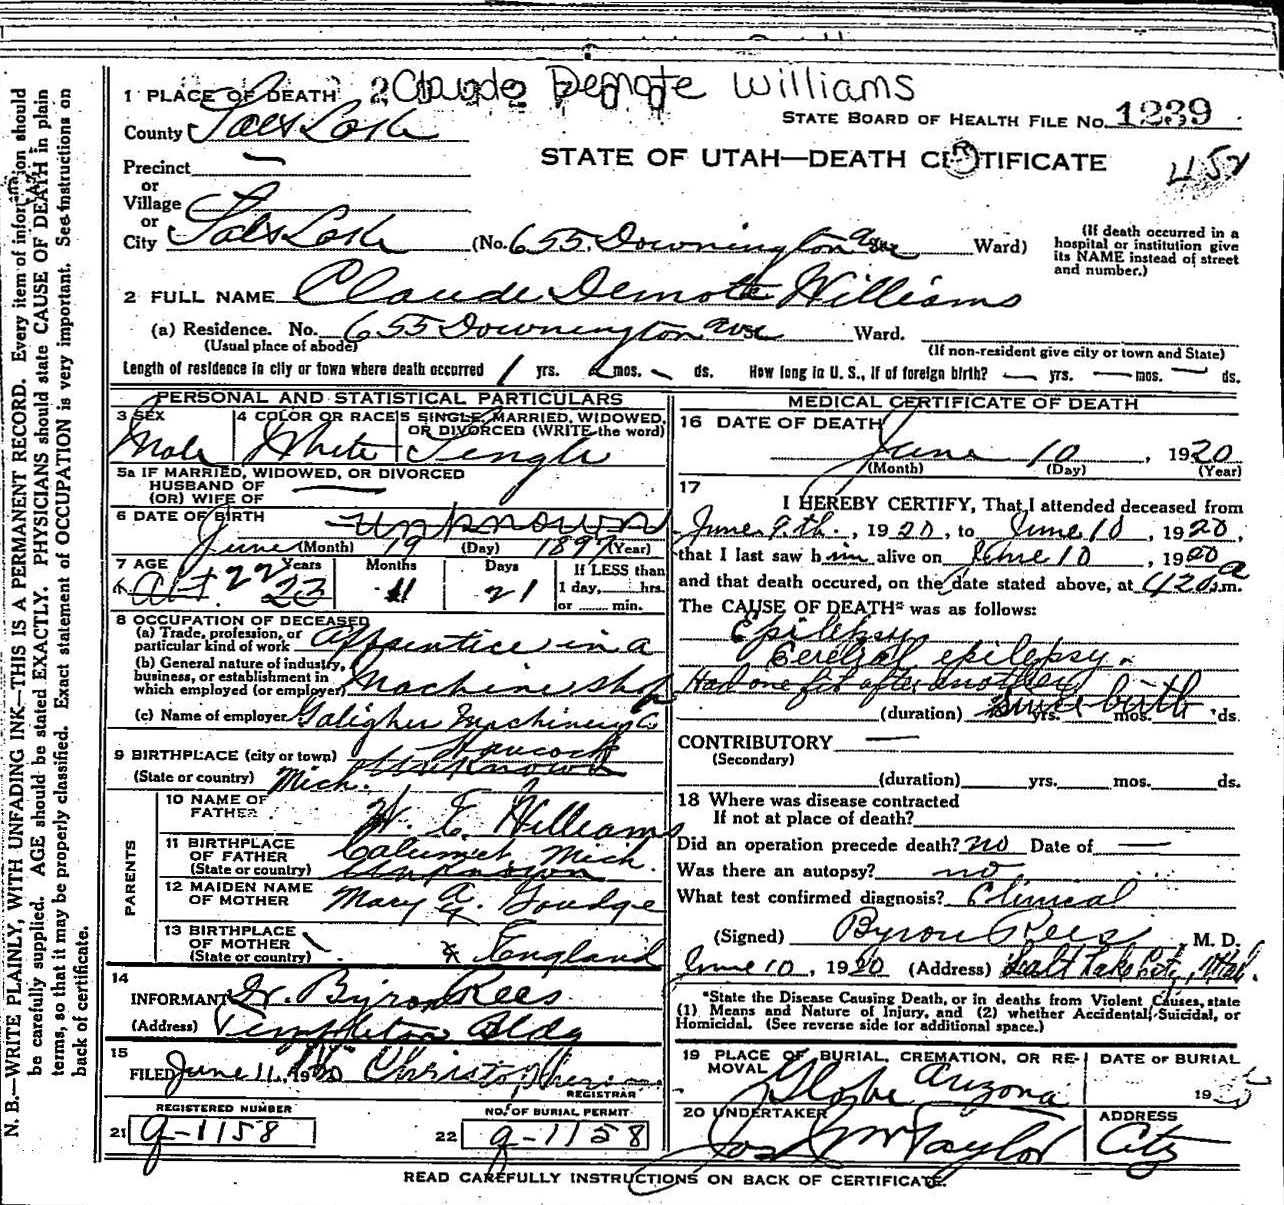 Claude Demote Williams
1 PLACE OF DEATH
STATE BOARD OF HEALTH FILE NO. 1239
County Salt Lake
STATE OF UTAH—DEATH CERTIFICATE
452
Precinct
or
Village
or
City Salt Lake (No. 655 Downington Ave Ward)
(If death occurred in a
hospital or institution give
its NAME instead of street
and number.)
2 FULL NAME Claude Demote Williams
(a) Residence. No. 655 Downington Ave Ward.
(Usual place of abode) (If non-resident give city or town and State)
Length of residence in city or town where death occurred 1 yrs. mos. ds. How long in U. S., if of foreign birth? yrs. mos. ds.
PERSONAL AND STATISTICAL PARTICULARS
3 SEX 4 COLOR OR RACE 5 SINGLE, MARRIED, WIDOWED,
OR DIVORCED (WRITE the word)
Male White Single
5a IF MARRIED, WIDOWED, OR DIVORCED
HUSBAND OF
(OR) WIFE OF
6 DATE OF BIRTH unknown
June (Month) 19 (Day) 1897 (Year)
7 AGE Years Months Days If LESS than
1 day, hrs.
or min.
Abt. 22 23 11 21
8 OCCUPATION OF DECEASED
(a) Trade, profession, or
particular kind of work Apprentice in a
(b) General nature of industry,
business, or establishment in
which employed (or employer) Machine shop
(c) Name of employer Galigher Machinery Co
9 BIRTHPLACE (city or town) Hancock
(State or country) Mich. Unknown
PARENTS
10 NAME OF
FATHER W. E. Williams
11 BIRTHPLACE
OF FATHER Calumet, Mich.
(State or country) Unknown
12 MAIDEN NAME
OF MOTHER Mary A. Goudge
13 BIRTHPLACE
OF MOTHER
(State or country) England
14
INFORMANT Dr. Byron Rees
(Address) Templeton Bldg
15
FILED June 11, 1920 Christophers
REGISTRAR
REGISTERED NUMBER
21 g-1158
NO. OF BURIAL PERMIT
22 g-1158
MEDICAL CERTIFICATE OF DEATH
16 DATE OF DEATH
June 10, 1920
(Month) (Day) (Year)
17
I HEREBY CERTIFY, That I attended deceased from
June 9.th., 1920, to June 10, 1920,
that I last saw him alive on June 10, 1920
and that death occured, on the date stated above, at 420 a.m.
The CAUSE OF DEATH* was as follows:
Epilepsy
Cerebral epilepsy.
Had one fit after another
(duration) since birth yrs. mos. ds.
CONTRIBUTORY —
(Secondary)
(duration) yrs. mos. ds.
18 Where was disease contracted
If not at place of death?
Did an operation precede death? no Date of —
Was there an autopsy? no
What test confirmed diagnosis? Clinical
(Signed) Byron Rees M. D.
June 10, 1920 (Address) Salt Lake City, Utah.
*State the Disease Causing Death, or in deaths from Violent Causes, state
(1) Means and Nature of Injury, and (2) whether Accidental, Suicidal, or
Homicidal. (See reverse side for additional space.)
19 PLACE OF BURIAL, CREMATION, OR RE-
MOVAL
DATE OF BURIAL
Globe Arizona 19
20 UNDERTAKER ADDRESS
Jos Wm Taylor City
READ CAREFULLY INSTRUCTIONS ON BACK OF CERTIFICATE.
N. B.—WRITE PLAINLY, WITH UNFADING INK—THIS IS A PERMANENT RECORD. Every item of information should
be carefully supplied. AGE should be stated EXACTLY. PHYSICIANS should state CAUSE OF DEATH in plain
terms, so that it may be properly classified. Exact statement of OCCUPATION is very important. See instructions on
back of certificate.